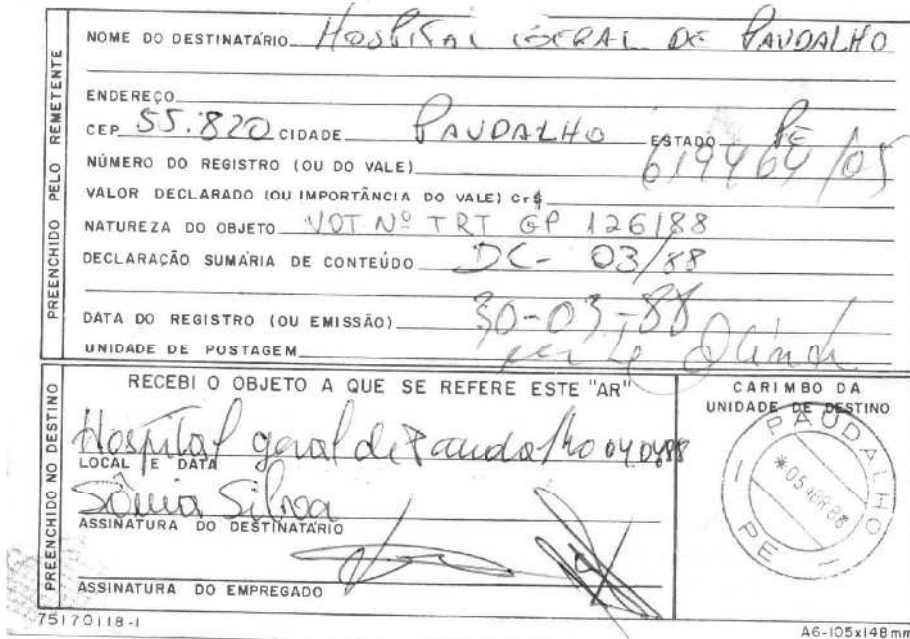 PREENCHIDO PELO REMETENTE
NOME DO DESTINATÁRIO HOSPITAL GERAL DE PAUDALHO
ENDEREÇO
CEP 55.820 CIDADE PAUDALHO ESTADO PE
NÚMERO DO REGISTRO (OU DO VALE) 619464/05
VALOR DECLARADO (OU IMPORTÂNCIA DO VALE) Cr$
NATUREZA DO OBJETO NOT Nº TRT GP 126/88
DECLARAÇÃO SUMÁRIA DE CONTEÚDO DC- 03/88
DATA DO REGISTRO (OU EMISSÃO) 30-03-88
UNIDADE DE POSTAGEM
PREENCHIDO NO DESTINO
RECEBI O OBJETO A QUE SE REFERE ESTE "AR"
Hospital geral de Paudalho 04 04 88
LOCAL E DATA
Sônia Silva
ASSINATURA DO DESTINATÁRIO
ASSINATURA DO EMPREGADO
CARIMBO DA
UNIDADE DE DESTINO
PAUDALHO
*05 ABR 88
PE
75170118-1
A6-105x148mm